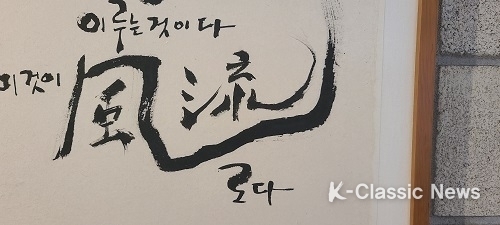 이루는것이다
이것이
風流
로다
K-Classic News